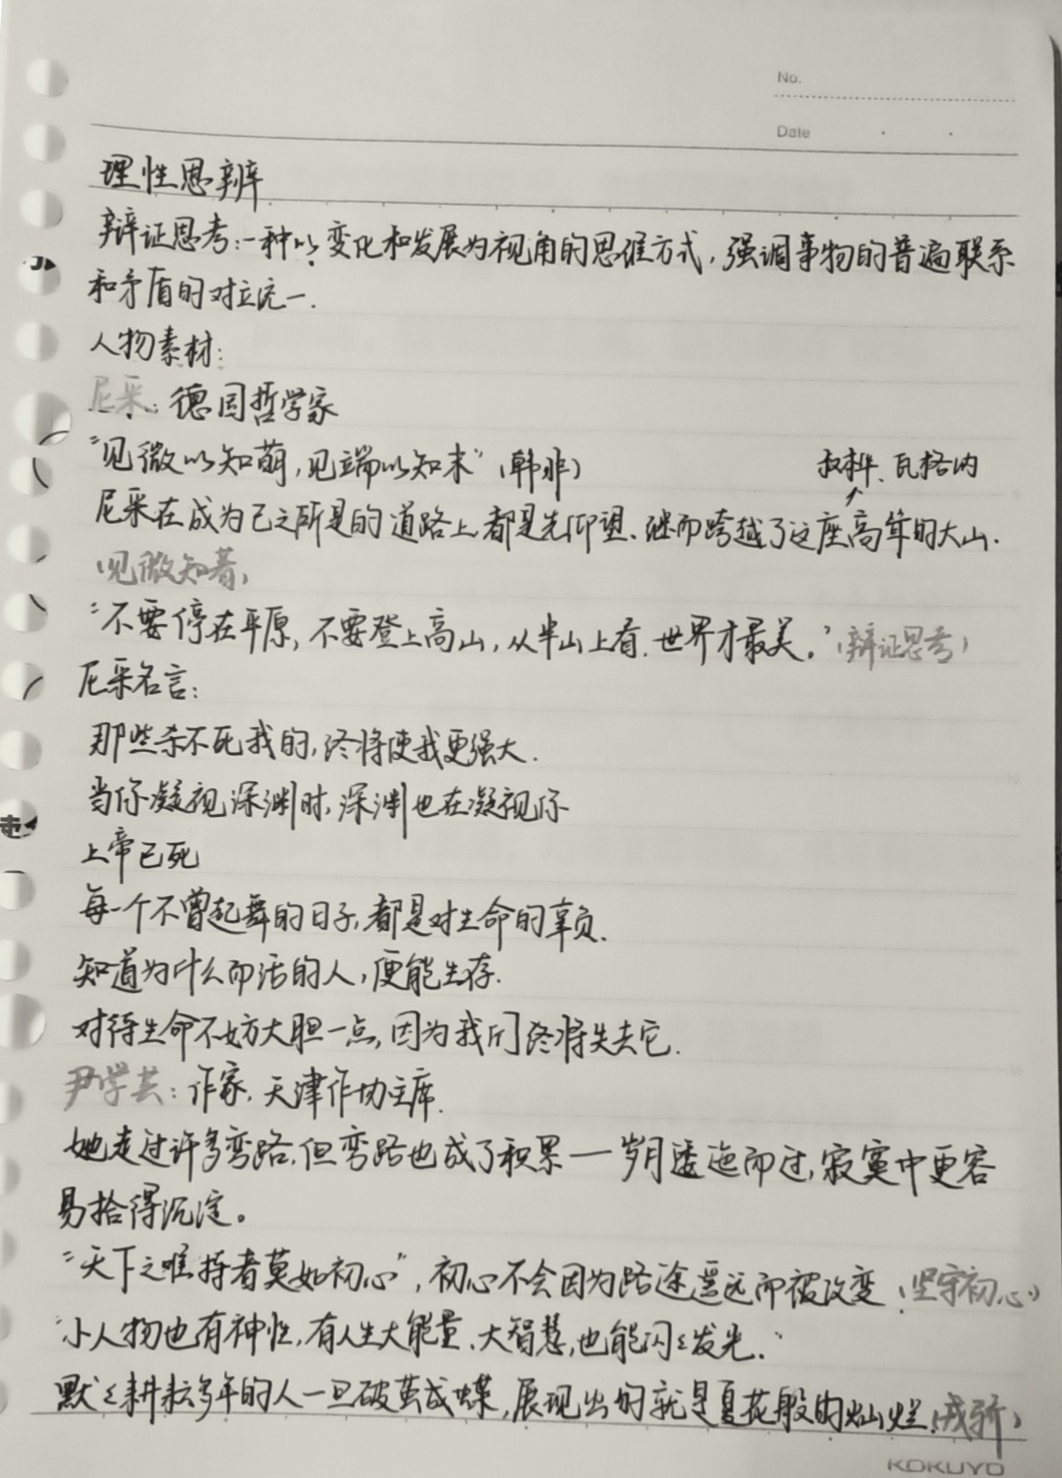 No.
Date
理性思辨
辩证思考:一种以变化和发展为视角的思维方式,强调事物的普遍联系
和矛盾的对立统一.
人物素材:
尼采:德国哲学家
"见微以知萌,见端以知末"(韩非)
叔本华、瓦格纳
尼采在成为己之所是的道路上,都是先仰望、继而跨越了这座高耸的大山.
(见微知著)
"不要停在平原,不要登上高山,从半山上看,世界才最美。"(辩证思考)
尼采名言:
那些杀不死我的,终将使我更强大.
当你凝视深渊时,深渊也在凝视你
上帝已死
每一个不曾起舞的日子,都是对生命的辜负.
知道为什么而活的人,便能生存.
对待生命不妨大胆一点,因为我们终将失去它.
尹学芸:作家,天津作协主席.
她走过许多弯路,但弯路也成了积累——岁月逶迤而过,寂寞中更容
易拾得沉淀。
"天下之难持者莫如初心",初心不会因为路途遥远而被改变(坚守初心)
"小人物也有神性,有人生大能量、大智慧,也能闪々发光."
默々耕耘多年的人一旦破茧成蝶,展现出的就是夏花般的灿烂.(戒骄)
KOKUYO